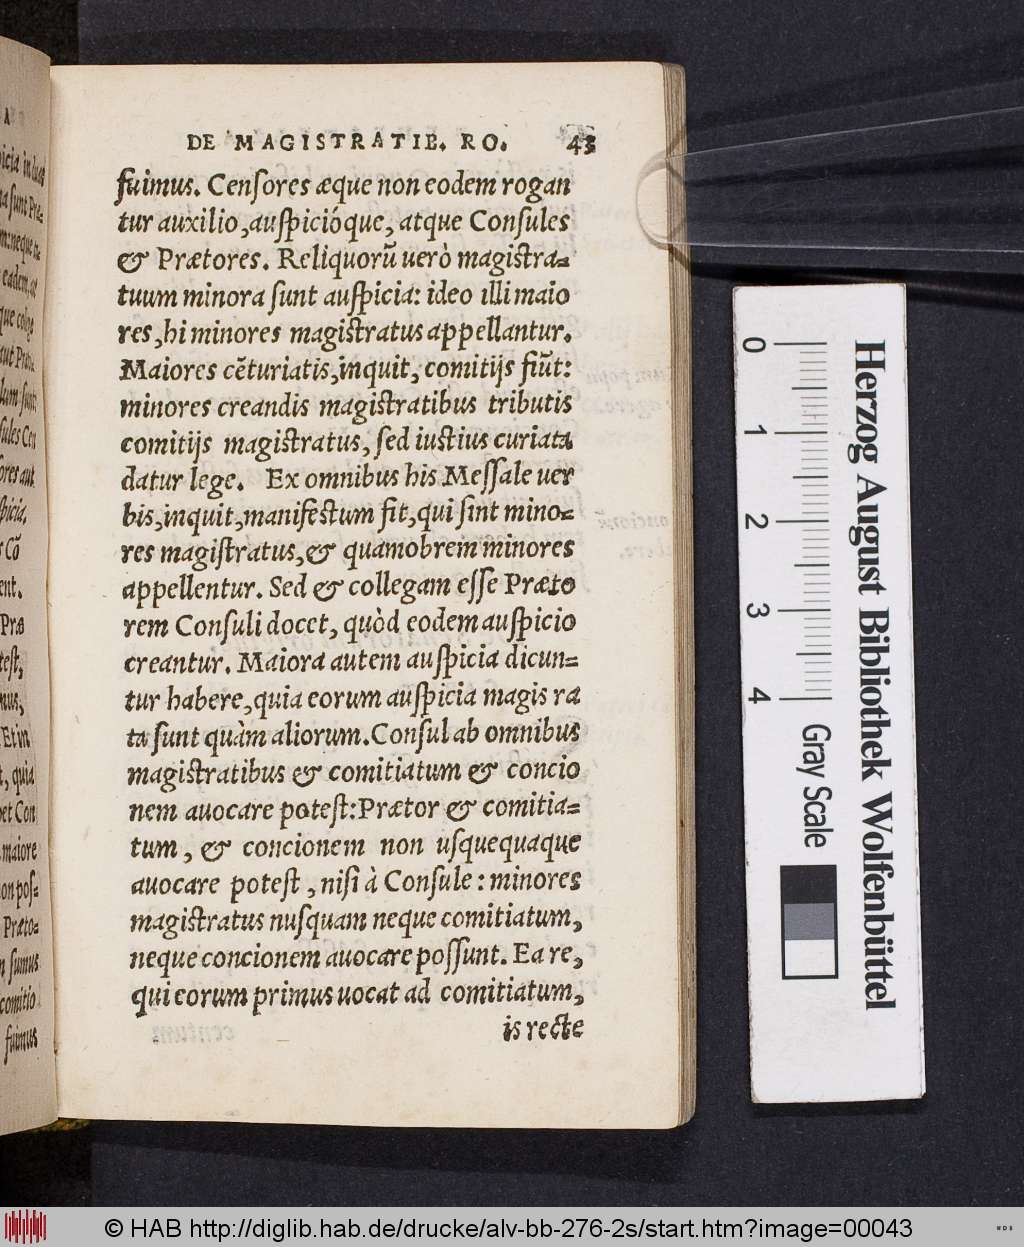 DE MAGISTRATIB. RO. 43
fuimus. Censores æque non eodem rogan
tur auxilio, auspicióque, atque Consules
& Prætores. Reliquorũ uerò magistra-
tuum minora sunt auspicia: ideo illi maio
res, hi minores magistratus appellantur.
Maiores cẽturiatis, inquit, comitijs fiũt:
minores creandis magistratibus tributis
comitijs magistratus, sed iustius curiata
datur lege. Ex omnibus his Messale uer
bis, inquit, manifestum fit, qui sint mino-
res magistratus, & quamobrem minores
appellentur. Sed & collegam esse Præto
rem Consuli docet, quòd eodem auspicio
creantur. Maiora autem auspicia dicun-
tur habere, quia eorum auspicia magis ra
ta sunt quàm aliorum. Consul ab omnibus
magistratibus & comitiatum & concio
nem auocare potest: Prætor & comitia-
tum, & concionem non usquequaque
auocare potest, nisi à Consule: minores
magistratus nusquam neque comitiatum,
neque concionem auocare possunt. Ea re,
qui eorum primus uocat ad comitiatum,
is recte
Herzog August Bibliothek Wolfenbüttel
0 1 2 3 4
Gray Scale
© HAB http://diglib.hab.de/drucke/alv-bb-276-2s/start.htm?image=00043